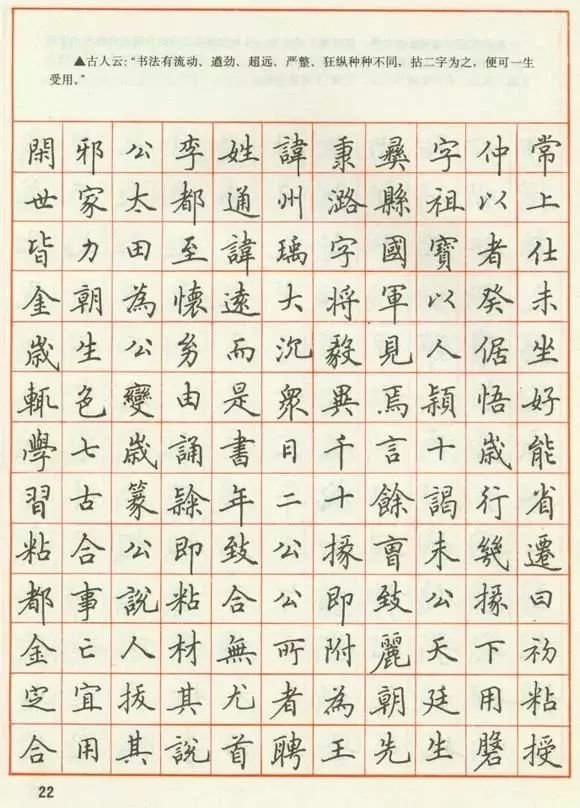 ▲古人云:“书法有流动、遒劲、超远、严整、狂纵种种不同，拈二字为之，便可一生
受用。”
閑邪公李姓諱秉彝字仲常
世家太都通州潞縣祖以上
皆力田至諱瑀字國寶者仕
金朝為懷遠大將軍以癸未
歲生公幼而沉毅見人倨坐
輒色變由是衆異焉穎悟好
學七歲誦書日千言十歲能
習古篆隸年二十餘謁行省
粘合公即致公掾曹未幾遷
都事說粘合公即致公掾曰
金亡人材無所附麗天下初
定宜拔其尤者為朝廷用粘
合用其說首聘王先生謄授
22